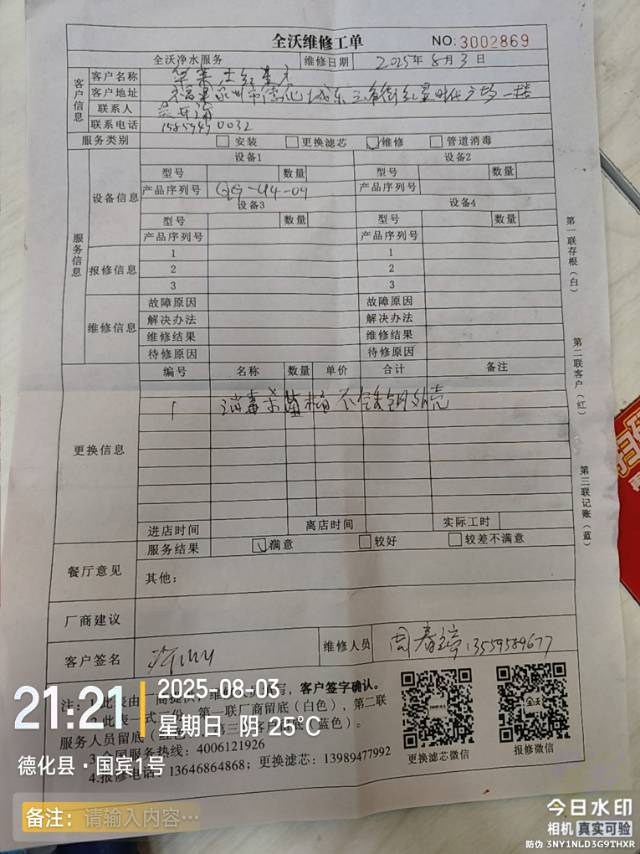 全沃维修工单
NO:3002869
全沃净水服务 维修日期 2025年8月3日
客户信息
客户名称
客户地址 福建泉州市德化城东
联系人
联系电话 15859490032
服务类别 安装 更换滤芯 维修 管道消毒
服务信息
设备信息
设备1 设备2
型号 数量 型号 数量
产品序列号 QG-U4-04 产品序列号
设备3 设备4
型号 数量 型号 数量
产品序列号 产品序列号
报修信息
1 1
2 2
3 3
维修信息
故障原因 故障原因
解决办法 解决办法
维修结果 维修结果
待修原因 待修原因
更换信息
编号 名称 数量 单价 合计 备注
1 消毒杀菌 不锈钢外壳
进店时间 离店时间 实际工时
餐厅意见
服务结果 满意 较好 较差不满意
其他:
厂商建议
客户签名 维修人员 周春 13559589677
注:1.此表由 商提供 写,客户签字确认。
此表一式三份,第一联厂商留底(白色),第二联
服务人员留底 蓝色)。
3.全国服务热线:4006121926
4.报修电话:13646864868;更换滤芯:13989477992
更换滤芯微信 报修微信
第一联存根(白)
第二联客户(红)
第三联记账(蓝)
21:21
2025-08-03
星期日 阴 25°C
德化县·国宾1号
备注: 请输入内容…
今日水印
相机 真实可验
防伪 3NY1NLD3G9THXR